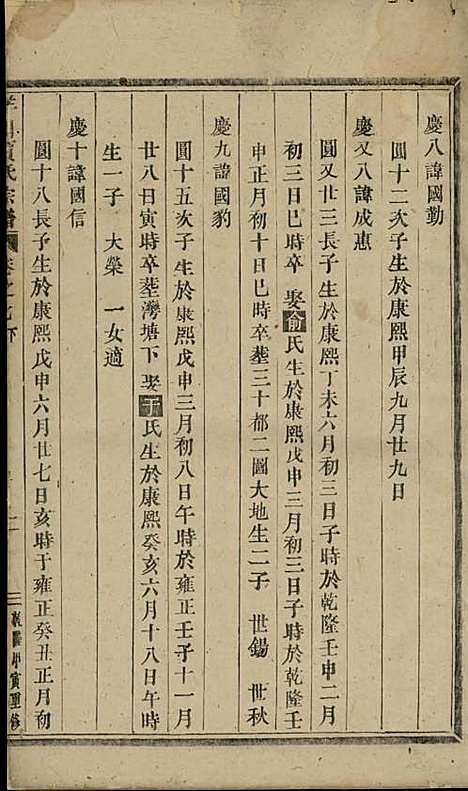 慶八諱國勤
圓十二次子生於康熙甲辰九月廿九日
慶又八諱成惠
圓又廿三長子生於康熙丁未六月初三日子時於乾隆壬申二月
初三日巳時卒 娶俞氏生於康熙戊申三月初三日子時於乾隆壬
申正月初十日巳時卒塟三十都二圖大地生二子 世錫 世秋
慶九諱國豹
圓十五次子生於康熙戊申三月初八日午時於雍正壬子十一月
廿八日寅時卒塟灣塘下 娶于氏生於康熙癸亥六月十八日午時
生一子 大榮 一女適
慶十諱國信
圓十八長子生於康熙戊申六月廿七日亥時于雍正癸丑正月初
氏宗譜 卷之 下
寅重修